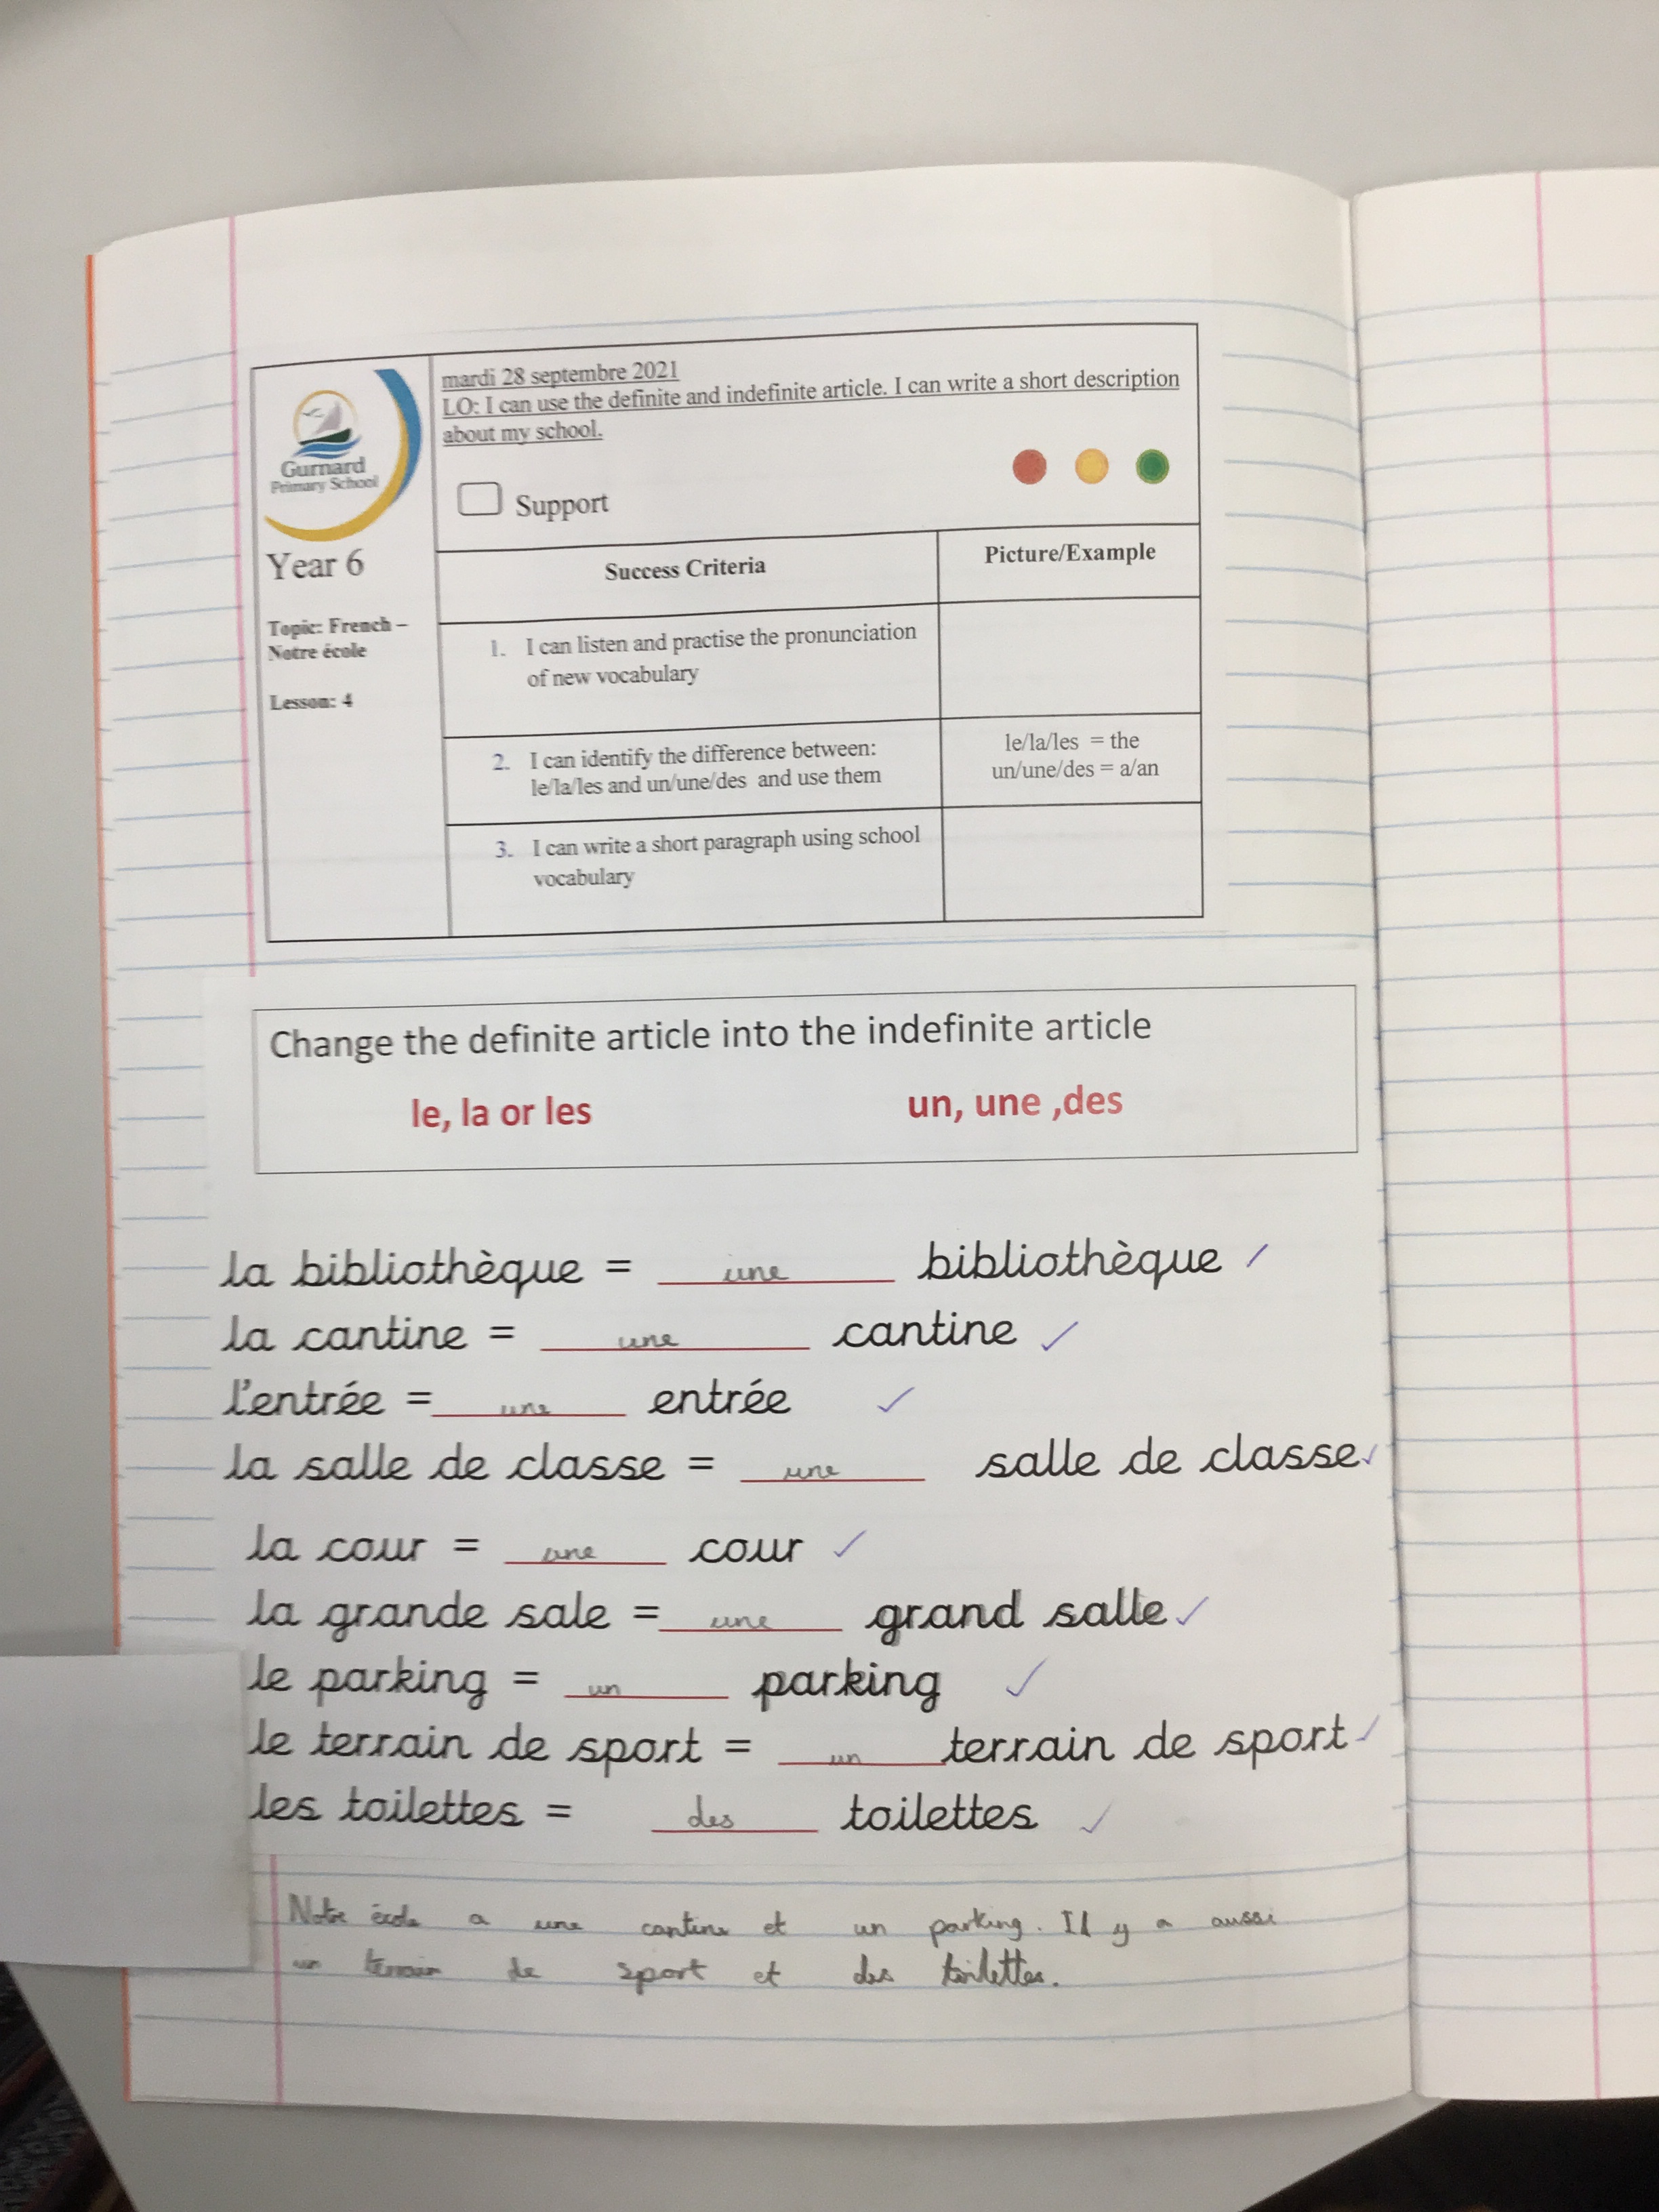 Gurnard
Primary School
Year 6
Topic: French –
Notre école
Lesson: 4
mardi 28 septembre 2021
LO: I can use the definite and indefinite article. I can write a short description
about my school.
Support
Success Criteria
Picture/Example
1. I can listen and practise the pronunciation
of new vocabulary
2. I can identify the difference between:
le/la/les and un/une/des and use them
le/la/les = the
un/une/des = a/an
3. I can write a short paragraph using school
vocabulary
Change the definite article into the indefinite article
le, la or les un, une ,des
la bibliothèque = une bibliothèque
la cantine = une cantine
l'entrée = une entrée
la salle de classe = une salle de classe
la cour = une cour
la grande sale = une grand salle
le parking = un parking
le terrain de sport = un terrain de sport
les toilettes = des toilettes
Notre école a une cantine et un parking. Il y a aussi
un terrain de sport et des toilettes.